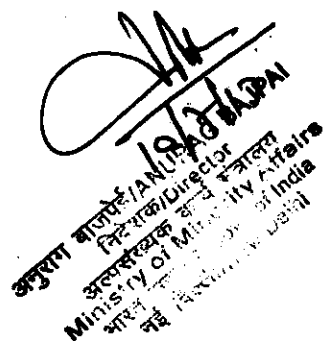 अनुराग बाजपेई/ANURAG BAJPAI
निदेशक/Director
अल्पसंख्यक कार्य मंत्रालय
Ministry of Minority Affairs
भारत of India
नई Delhi